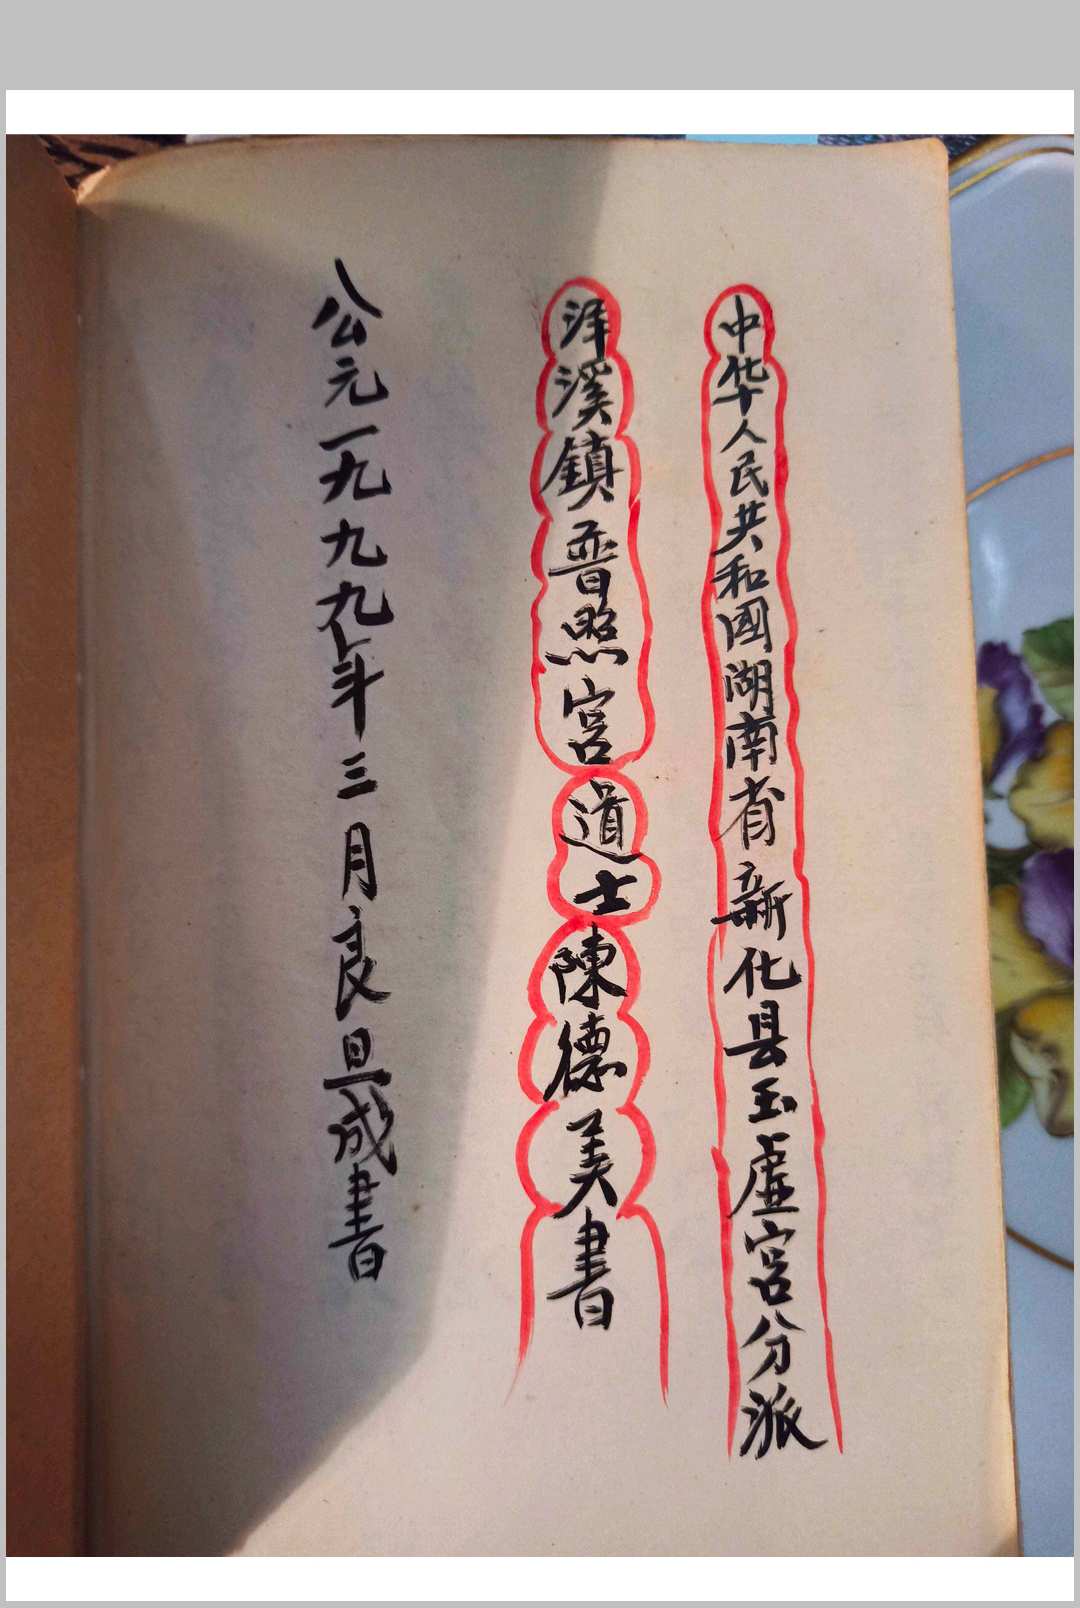 中华人民共和國湖南省新化县玉虚宫分派
洋溪鎮普照宮道士陳德美書
公元一九九九年三月良旦成書